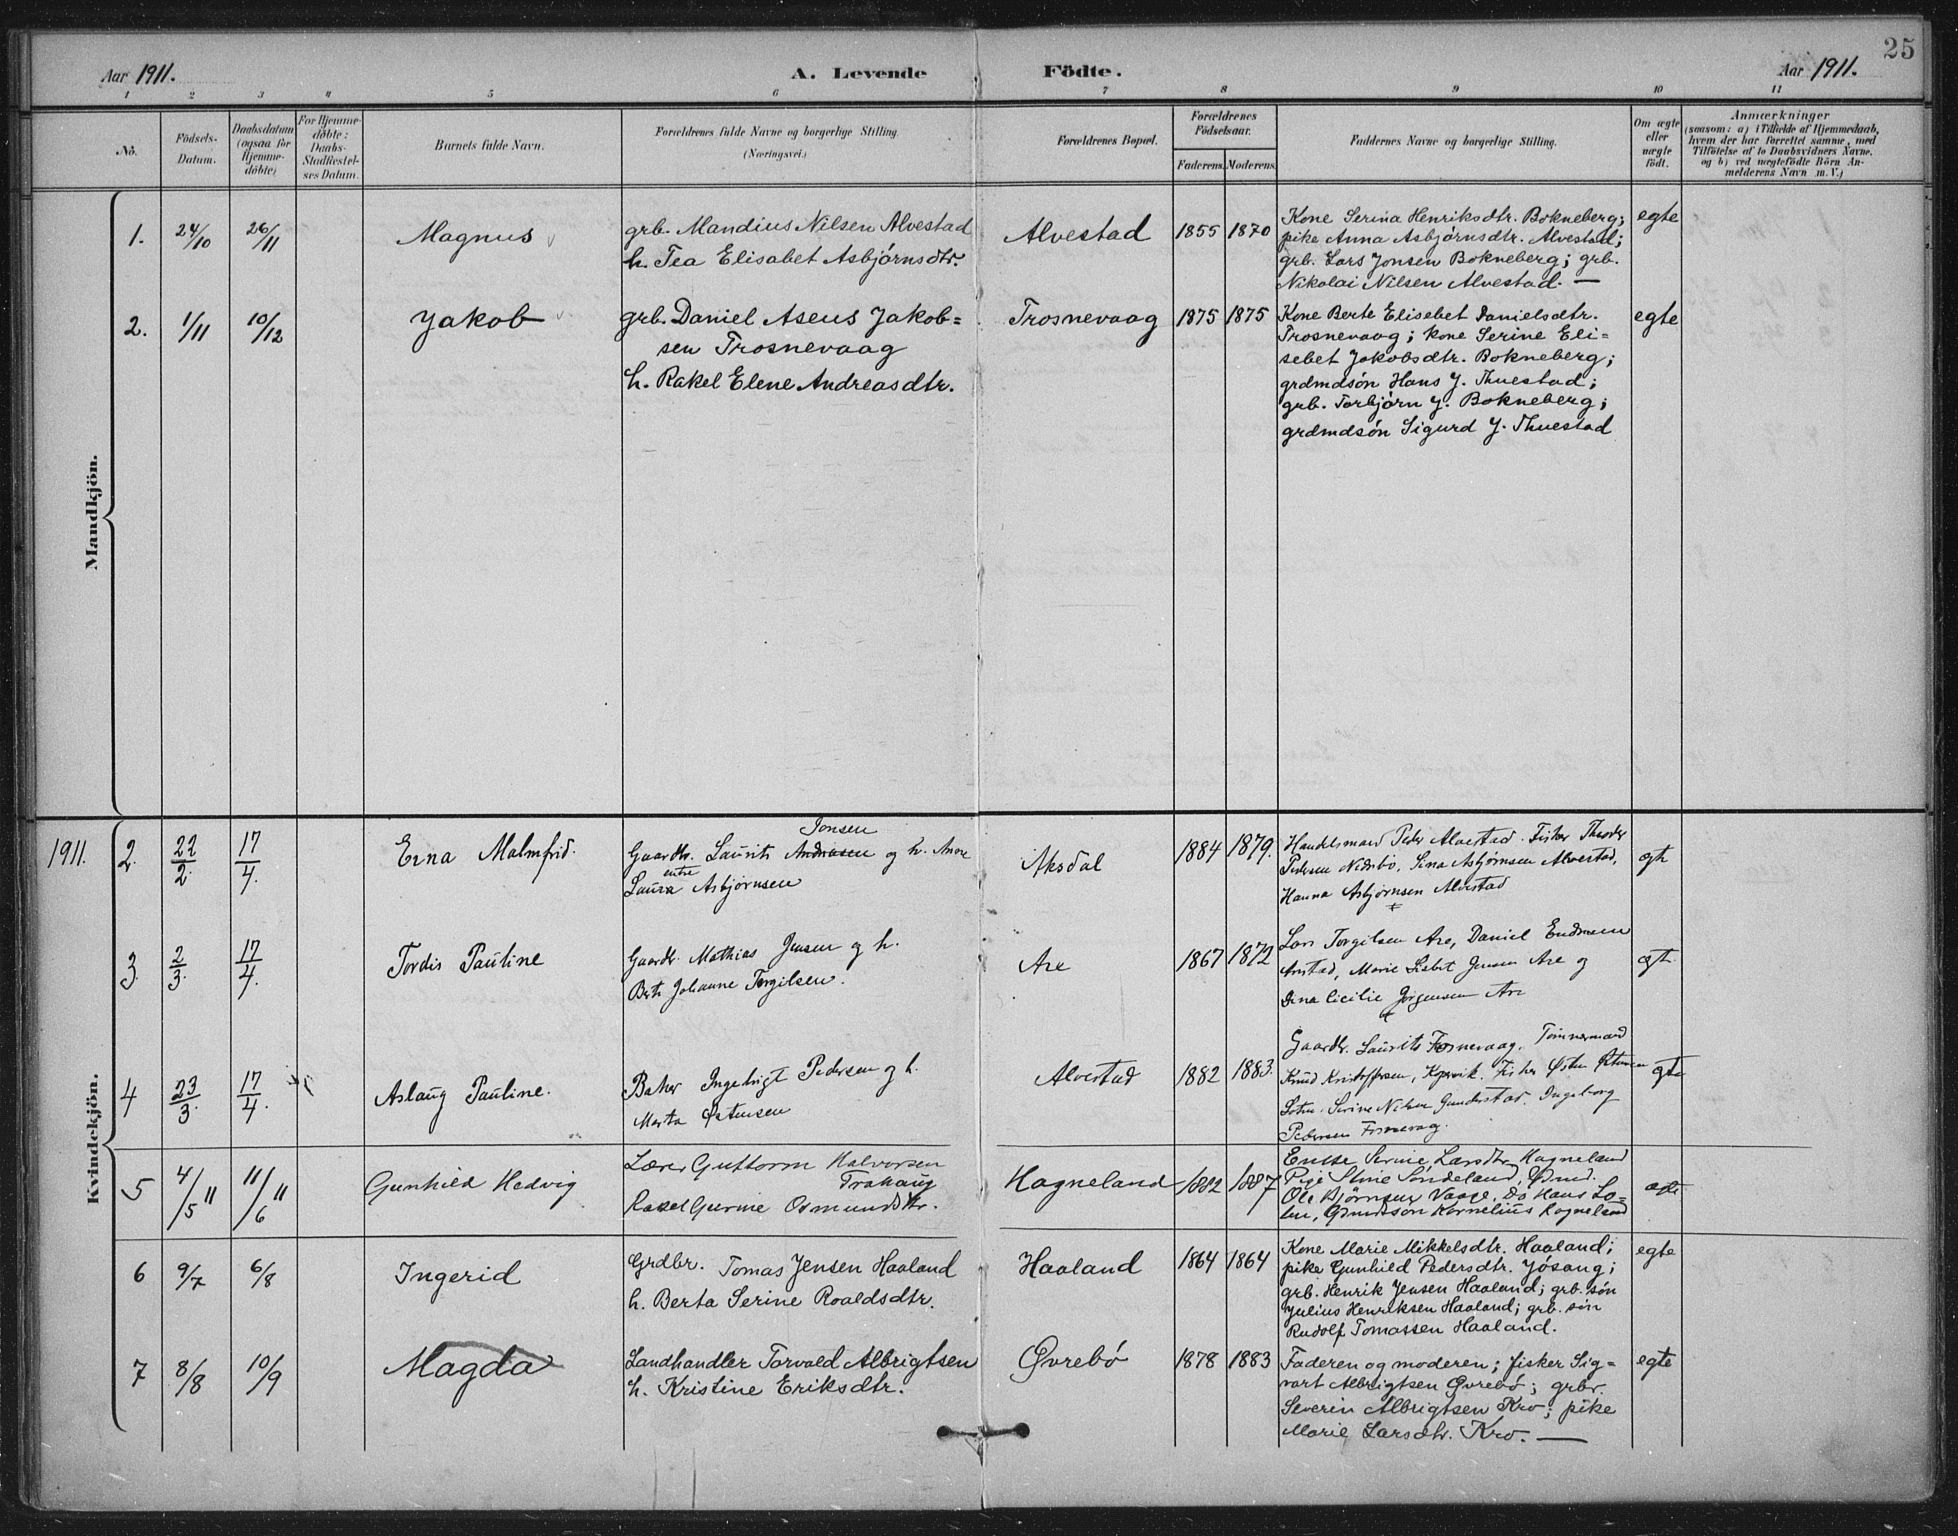 25
Aar 1911.
A. Levende Födte.
Aar 1911.
1 2 3 4 5 6 7 8 9 10 11
No.
Födsels-
Datum.
Daabsdatum
(ogsaa for
Hjemme-
döbte)
For Hjemme-
döbte:
Daabs-
Stadfæstel-
ses Datum.
Barnets fulde Navn.
Forældrenes fulde Navne og borgerlige Stilling.
(Næringsvei.)
Forældrenes Bopæl.
Forældrenes
Födselsaar.
Faderens. Moderens.
Faddernes Navne og borgerlige Stilling.
Om ægte
eller
uægte
födt.
Anmærkninger
(saasom: a) i Tilfælde af Hjemmedaab,
hvem der har forrettet samme, med
Tilföielse af to Daabsvidners Navne,
og b) ved uægtefödte Börn An-
melderens Navn m. V.)
Mandkjön.
1. 24/10 26/11 Magnus
grb. Mandius Nilsen Alvestad
h. Tea Elisabet Asbjörnsdtr.
Alvestad 1855 1870
Kone Serina Henriksdtr. Bokneberg;
pike Anna Asbjörnsdtr. Alvestad;
grb. Lars Jonsen Bokneberg; grb.
Nikolai Nilsen Alvestad. —
egte
2. 1/11 10/12 Jakob
grb. Daniel Aseus Jakob=
sen Trosnevaag
h. Rakel Elene Andreasdtr.
Trosnevaag 1875 1875
Kone Berte Elisebet Danielsdtr.
Trosnevaag; kone Serine Eli=
sebet Jakobsdtr. Bokneberg;
grdmdsön Hans J. Thuestad;
grb. Torbjörn J. Bokneberg;
grdmdsön Sigurd J. Thuestad
egte
Kvindekjön.
1911. 2. 22/2. 17/4. Erna Malmfrid.
Jonsen
Gaardbr. Laurits Andreasen og h. Anne
Laura Asbjørnsen
Aksdal 1884 1879.
Handelsmand Peder Alvestad. Fisker
Pedersen Nedrebø, Lina Asbjørnsen Alvestad,
Hanna Asbjørnsen Alvestad
3. 2/3. 17/4. Tordis Pauline
Gaardbr. Mathias Jensen og h.
Johanne Torgilsen.
Are 1867 1872
Lars Torgilsen Are, Daniel
Marie Jensen Are og
Cicilie Jørgensen Are
4 23/3. 17/4. Aslaug Pauline.
Baker Ingebrigt Pedersen og h.
Marta Østensen
Alvestad 1882 1883.
Gaardbr. Laurits Tømmermand
Knud Kristoffersen, Kopervik. Fisker Østen
Serine Nilsen Ingeborg
Pedersen
5 4/5 11 11/6 11 Gunhild Hedvig
Lærer Guttorm Halvorsen
Rakel Gurine Osmundsdtr.
Hagneland 1882 1887
Enke Serine Larsdtr. Hagneland
Pige Stine
Ole Bjørnsen Vaage, Do Hans
Kornelius Hagneland
6 9/7 6/8 Ingerid
Grdbr. Tomas Jensen Haaland
h. Berta Serine Roaldsdtr.
Haaland 1864 1864
Kone Marie Mikkelsdtr. Haaland;
pike Gunhild Pedersdtr. Jösang;
grb. Henrik Jensen Haaland; grb. sön
Julius Henriksen Haaland; grb. sön
Rudolf Tomassen Haaland.
egte
7 8/8 10/9 Magda
Landhandler Torvald Albrigtsen
h. Kristine Eriksdtr.
Øvrebö 1878 1883
Faderen og moderen; fisker Sig=
vart Albrigtsen Øvrebö; grbr.
Severin Albrigtsen Kro; pike
Marie Larsdtr. Kro. —
egte